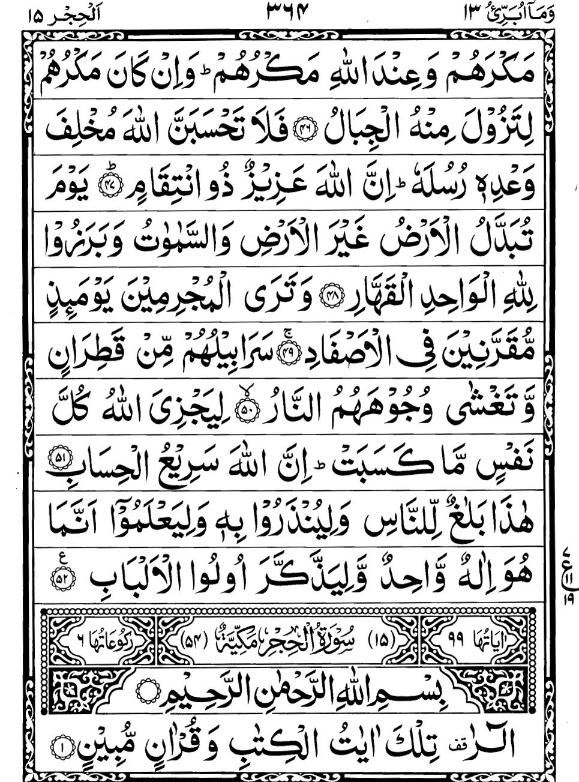 وَمَآ اُبَرِّئُ ۱۳ ۳۶۴ اَلْحِجْر ۱۵
مَكْرَهُمْ وَعِنْدَ اللهِ مَكْرُهُمْ ؕ وَاِنْ كَانَ مَكْرُهُمْ
لِتَزُوْلَ مِنْهُ الْجِبَالُ ۴۶ فَلَا تَحْسَبَنَّ اللهَ مُخْلِفَ
وَعْدِهٖ رُسُلَهٗ ؕ اِنَّ اللهَ عَزِيْزٌ ذُو انْتِقَامٍ ؕ ۴۷ يَوْمَ
تُبَدَّلُ الْاَرْضُ غَيْرَ الْاَرْضِ وَالسَّمٰوٰتُ وَبَرَزُوْا
لِلّٰهِ الْوَاحِدِ الْقَهَّارِ ۴۸ وَتَرَى الْمُجْرِمِيْنَ يَوْمَئِذٍ
مُّقَرَّنِيْنَ فِى الْاَصْفَادِ ۚ ۴۹ سَرَابِيْلُهُمْ مِّنْ قَطِرَانٍ
وَّتَغْشٰى وُجُوْهَهُمُ النَّارُ ۙ ۵۰ لِيَجْزِىَ اللهُ كُلَّ
نَفْسٍ مَّا كَسَبَتْ ؕ اِنَّ اللهَ سَرِيْعُ الْحِسَابِ ۵۱
هٰذَا بَلٰغٌ لِّلنَّاسِ وَلِيُنْذَرُوْا بِهٖ وَلِيَعْلَمُوْٓا اَنَّمَا
هُوَ اِلٰهٌ وَّاحِدٌ وَّلِيَذَّكَّرَ اُولُوا الْاَلْبَابِ ۵۲ ع
۷
ع
۱۱
۱۹
اٰيَاتُهَا ۹۹ (۱۵) سُوْرَةُ الْحِجْرِ مَكِّيَّةٌ (۵۴) رُكُوْعَاتُهَا ۶
بِسْمِ اللهِ الرَّحْمٰنِ الرَّحِيْمِ
الٓرٰ قف تِلْكَ اٰيٰتُ الْكِتٰبِ وَقُرْاٰنٍ مُّبِيْنٍ ۱